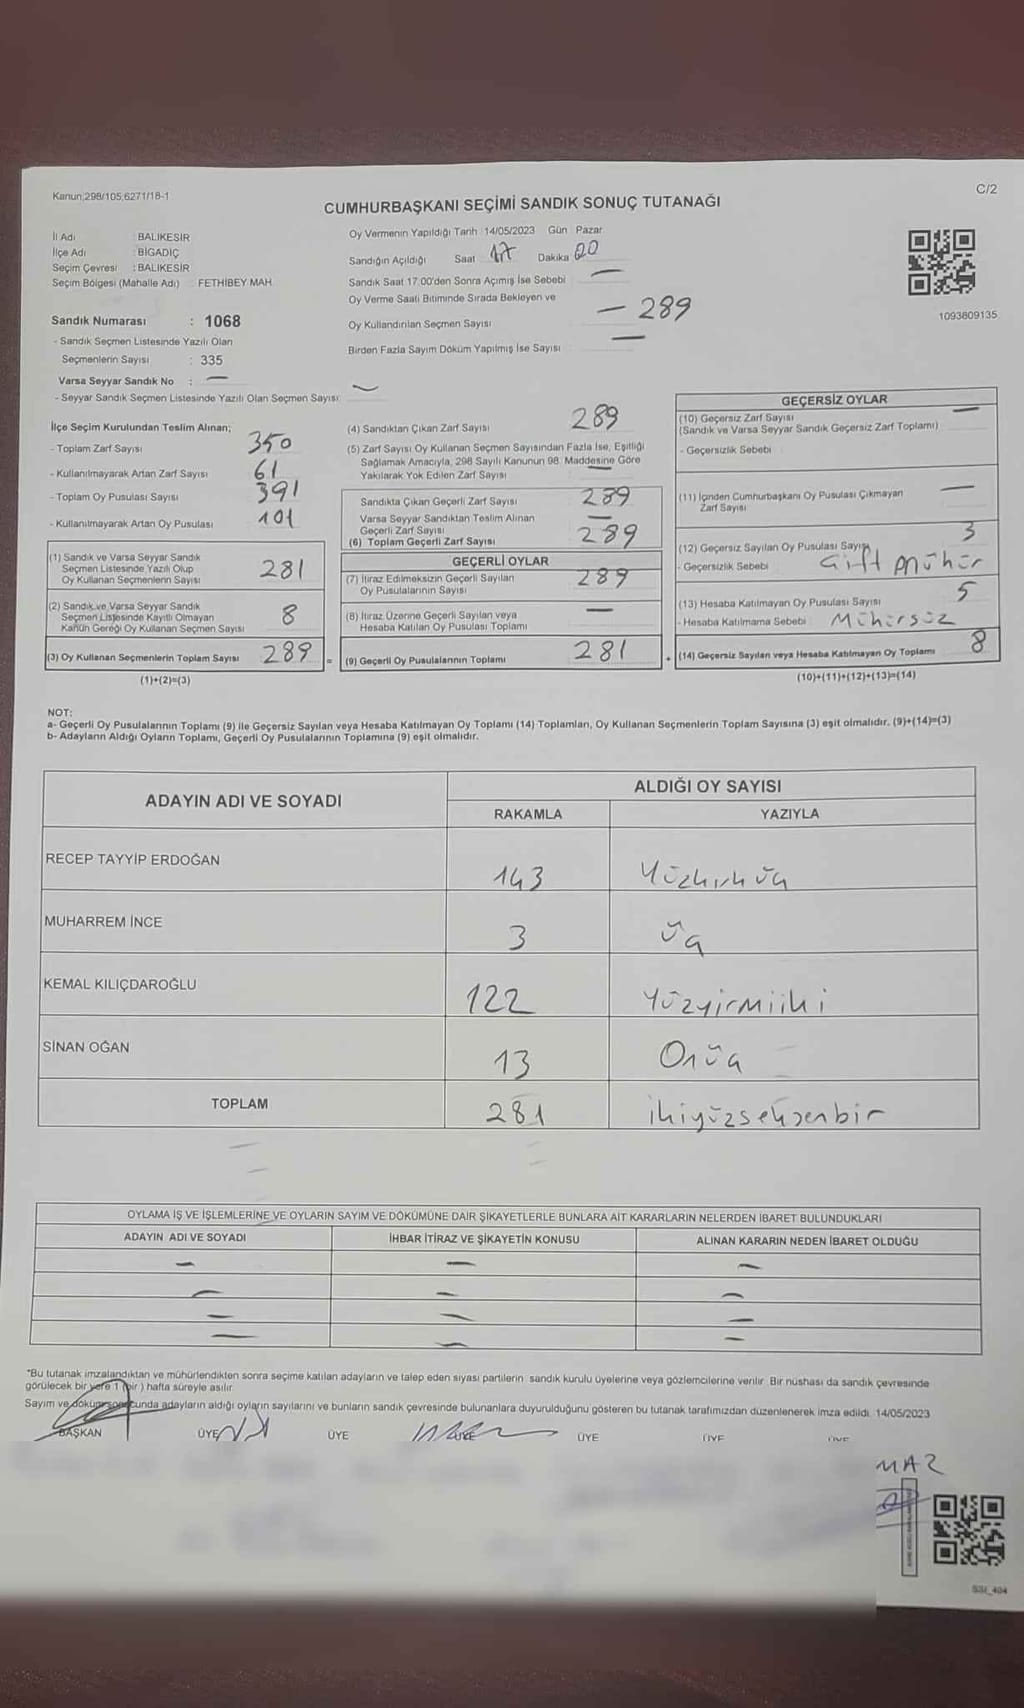 Kanun;298/105;6271/18-1
C/2
CUMHURBAŞKANI SEÇİMİ SANDIK SONUÇ TUTANAĞI
İl Adı : BALIKESİR
İlçe Adı : BİGADİÇ
Seçim Çevresi : BALIKESİR
Seçim Bölgesi (Mahalle Adı) : FETHİBEY MAH.
Sandık Numarası : 1068
- Sandık Seçmen Listesinde Yazılı Olan
Seçmenlerin Sayısı : 335
Varsa Seyyar Sandık No : —
- Seyyar Sandık Seçmen Listesinde Yazılı Olan Seçmen Sayısı: —
Oy Vermenin Yapıldığı Tarih 14/05/2023 Gün Pazar
Sandığın Açıldığı Saat 17 Dakika 00
Sandık Saat 17:00'den Sonra Açılmış İse Sebebi —
Oy Verme Saati Bitiminde Sırada Bekleyen ve
Oy Kullandırılan Seçmen Sayısı — 289
Birden Fazla Sayım Döküm Yapılmış İse Sayısı —
1093809135
İlçe Seçim Kurulundan Teslim Alınan;
- Toplam Zarf Sayısı 350
- Kullanılmayarak Artan Zarf Sayısı 61
- Toplam Oy Pusulası Sayısı 391
- Kullanılmayarak Artan Oy Pusulası 101
(1) Sandık ve Varsa Seyyar Sandık
Seçmen Listesinde Yazılı Olup
Oy Kullanan Seçmenlerin Sayısı 281
(2) Sandık ve Varsa Seyyar Sandık
Seçmen Listesinde Kayıtlı Olmayan
Kanun Gereği Oy Kullanan Seçmen Sayısı 8
(3) Oy Kullanan Seçmenlerin Toplam Sayısı 289
(1)+(2)=(3)
(4) Sandıktan Çıkan Zarf Sayısı 289
(5) Zarf Sayısı Oy Kullanan Seçmen Sayısından Fazla İse, Eşitliği
Sağlamak Amacıyla, 298 Sayılı Kanunun 98. Maddesine Göre
Yakılarak Yok Edilen Zarf Sayısı —
Sandıkta Çıkan Geçerli Zarf Sayısı 289
Varsa Seyyar Sandıktan Teslim Alınan
Geçerli Zarf Sayısı —
(6) Toplam Geçerli Zarf Sayısı 289
GEÇERLİ OYLAR
(7) İtiraz Edilmeksizin Geçerli Sayılan
Oy Pusulalarının Sayısı 289
(8) İtiraz Üzerine Geçerli Sayılan veya
Hesaba Katılan Oy Pusulası Toplamı —
= (9) Geçerli Oy Pusulalarının Toplamı 281 +
GEÇERSİZ OYLAR
(10) Geçersiz Zarf Sayısı —
(Sandık ve Varsa Seyyar Sandık Geçersiz Zarf Toplamı)
- Geçersizlik Sebebi
(11) İçinden Cumhurbaşkanı Oy Pusulası Çıkmayan —
Zarf Sayısı
(12) Geçersiz Sayılan Oy Pusulası Sayısı 3
- Geçersizlik Sebebi Çift mühür
(13) Hesaba Katılmayan Oy Pusulası Sayısı 5
- Hesaba Katılmama Sebebi Mühürsüz
(14) Geçersiz Sayılan veya Hesaba Katılmayan Oy Toplamı 8
(10)+(11)+(12)+(13)=(14)
NOT:
a- Geçerli Oy Pusulalarının Toplamı (9) ile Geçersiz Sayılan veya Hesaba Katılmayan Oy Toplamı (14) Toplamları, Oy Kullanan Seçmenlerin Toplam Sayısına (3) eşit olmalıdır. (9)+(14)=(3)
b- Adayların Aldığı Oyların Toplamı, Geçerli Oy Pusulalarının Toplamına (9) eşit olmalıdır.
ADAYIN ADI VE SOYADI
ALDIĞI OY SAYISI
RAKAMLA YAZIYLA
RECEP TAYYİP ERDOĞAN 143 Yüzkırküç
MUHARREM İNCE 3 üç
KEMAL KILIÇDAROĞLU 122 Yüzyirmiiki
SİNAN OĞAN 13 Onüç
TOPLAM 281 ikiyüzseksenbir
OYLAMA İŞ VE İŞLEMLERİNE VE OYLARIN SAYIM VE DÖKÜMÜNE DAİR ŞİKAYETLERLE BUNLARA AİT KARARLARIN NELERDEN İBARET BULUNDUKLARI
ADAYIN ADI VE SOYADI İHBAR İTİRAZ VE ŞİKAYETİN KONUSU ALINAN KARARIN NEDEN İBARET OLDUĞU
— — —
— — —
— — —
— — —
*Bu tutanak imzalandıktan ve mühürlendikten sonra seçime katılan adayların ve talep eden siyasi partilerin sandık kurulu üyelerine veya gözlemcilerine verilir. Bir nüshası da sandık çevresinde
görülecek bir yere 1 (bir) hafta süreyle asılır.
Sayım ve döküm sonucunda adayların aldığı oyların sayılarını ve bunların sandık çevresinde bulunanlara duyurulduğunu gösteren bu tutanak tarafımızdan düzenlenerek imza edildi. 14/05/2023
BAŞKAN ÜYE ÜYE ÜYE ÜYE ÜYE ÜYE
MAZ
SSI_404